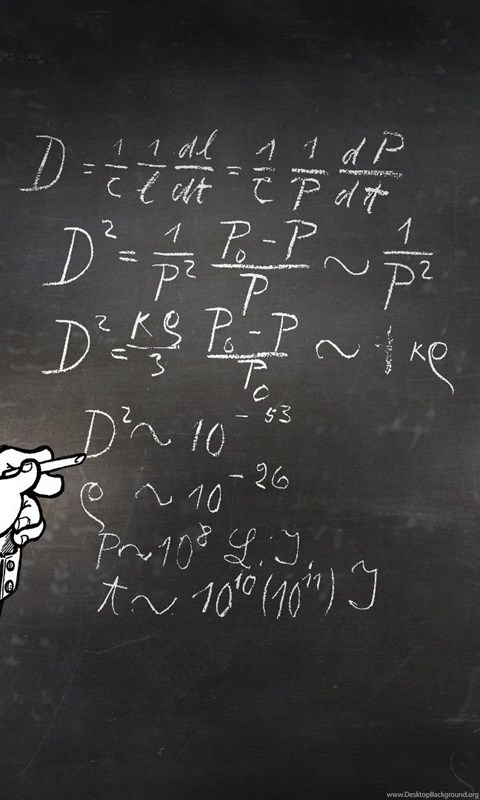 D = 1/c 1/l dl/dt = 1/c 1/P dP/dt
D² = 1/P² (P₀ - P)/P ~ 1/P²
D² = κρ/3 (P₀ - P)/P₀ ~ κρ
D² ~ 10⁻⁵³
ρ ~ 10⁻²⁶
P ~ 10⁸ L.J.
t ~ 10¹⁰(10¹¹) J
www.DesktopBackground.org